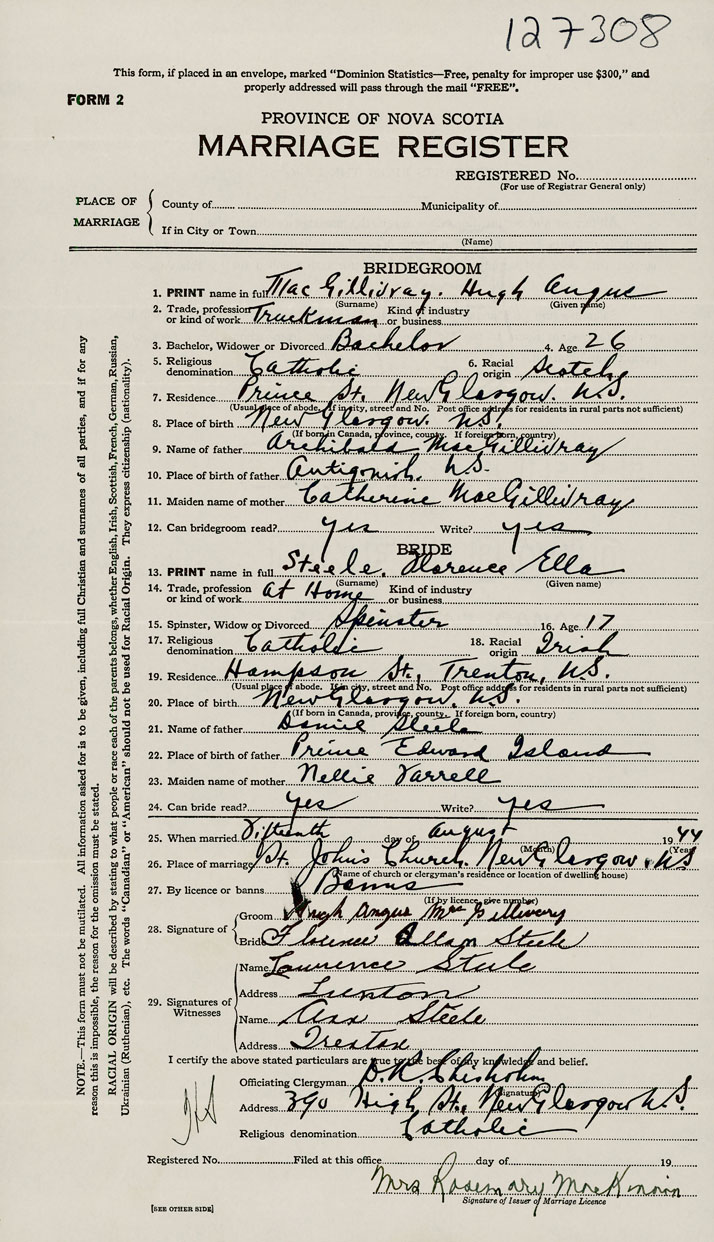 127308
This form, if placed in an envelope, marked “Dominion Statistics—Free, penalty for improper use $300,” and
properly addressed will pass through the mail “FREE”.
FORM 2
PROVINCE OF NOVA SCOTIA
MARRIAGE REGISTER
REGISTERED No.
(For use of Registrar General only)
PLACE OF MARRIAGE
County of Municipality of
If in City or Town
(Name)
BRIDEGROOM
1. PRINT name in full MacGillivray. Hugh Angus
(Surname) (Given name)
2. Trade, profession or kind of work Truckman Kind of industry or business
3. Bachelor, Widower or Divorced Bachelor 4. Age 26
5. Religious denomination Catholic 6. Racial origin Scotch
7. Residence Prince St. New Glasgow. N.S.
(Usual place of abode. If in city, street and No. Post office address for residents in rural parts not sufficient)
8. Place of birth New Glasgow. N.S.
(If born in Canada, province, county. If foreign born, country)
9. Name of father Archibald MacGillivray
10. Place of birth of father Antigonish. N.S.
11. Maiden name of mother Catherine MacGillivray
12. Can bridegroom read? yes Write? yes
BRIDE
13. PRINT name in full Steele. Florence Ella
(Surname) (Given name)
14. Trade, profession or kind of work at Home Kind of industry or business
15. Spinster, Widow or Divorced Spinster 16. Age 17
17. Religious denomination Catholic 18. Racial origin Irish
19. Residence Hampson St., Trenton, N.S.
(Usual place of abode. If in city, street and No. Post office address for residents in rural parts not sufficient)
20. Place of birth New Glasgow. N.S.
(If born in Canada, province, county. If foreign born, country)
21. Name of father Daniel Steele
22. Place of birth of father Prince Edward Island
23. Maiden name of mother Nellie Varrell
24. Can bride read? yes Write? yes
25. When married Fifteenth day of August 1944
(Month) (Year)
26. Place of marriage St. John's Church. New Glasgow. N.S
(Name of church or clergyman's residence or location of dwelling house)
27. By licence or banns Banns
(If by licence, give number)
28. Signature of
Groom Hugh Angus
Bride Florence Steele
29. Signatures of Witnesses
Name Lawrence Steele
Address Trenton
Name Ann Steele
Address Trenton
I certify the above stated particulars are true to the best of my knowledge and belief.
Officiating Clergyman D.K. Chisholm
(Signature)
Address 390 High St., New Glasgow N.S.
Religious denomination Catholic
Registered No. Filed at this office day of 19
Mrs Rosemary MacKinnon
Signature of Issuer of Marriage Licence
[SEE OTHER SIDE]
NOTE.—This form must not be mutilated. All information asked for is to be given, including full Christian and surnames of all parties, and if for any
reason this is impossible, the reason for the omission must be stated.
RACIAL ORIGIN will be described by stating to what people or race each of the parents belongs, whether English, Irish, Scottish, French, German, Russian,
Ukrainian (Ruthenian), etc. The words “Canadian” or “American” should not be used for Racial Origin. They express citizenship (nationality).